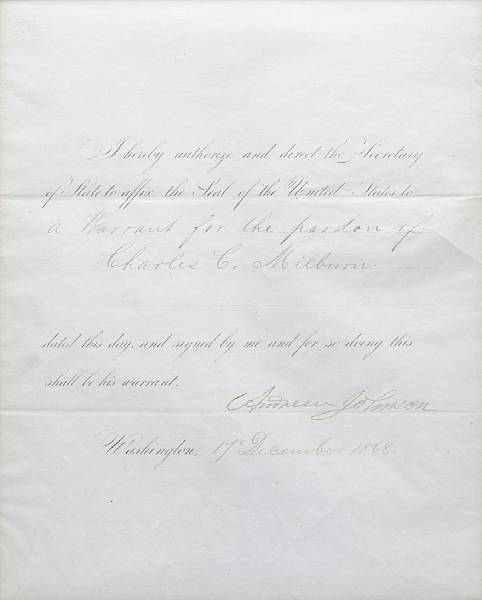 I hereby authorize and direct the Secretary
of State to affix the Seal of the United States to
a Warrant for the pardon of
Charles C. Milburn.
dated this day, and signed by me and for so doing this
shall be his warrant.
Andrew Johnson
Washington, 17th December 1868.